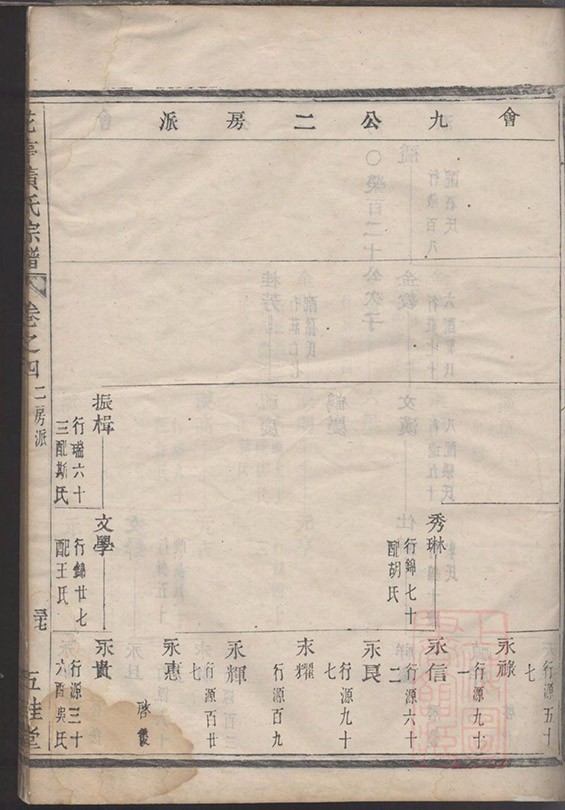 會九公二房派
永
行源五十
七
永祿
行源九十
一
秀琳
行錦七十
配胡氏
永信
行源六十
二
永良
行源九十
七
永耀
行源百九
永輝
行源百廿
七
永惠
啓
振楫
行瑞六十
三配斯氏
文學
行錦廿七
配王氏
永貴
行源三十
六配吳氏
黃氏宗譜
卷之四
二房派
五桂堂